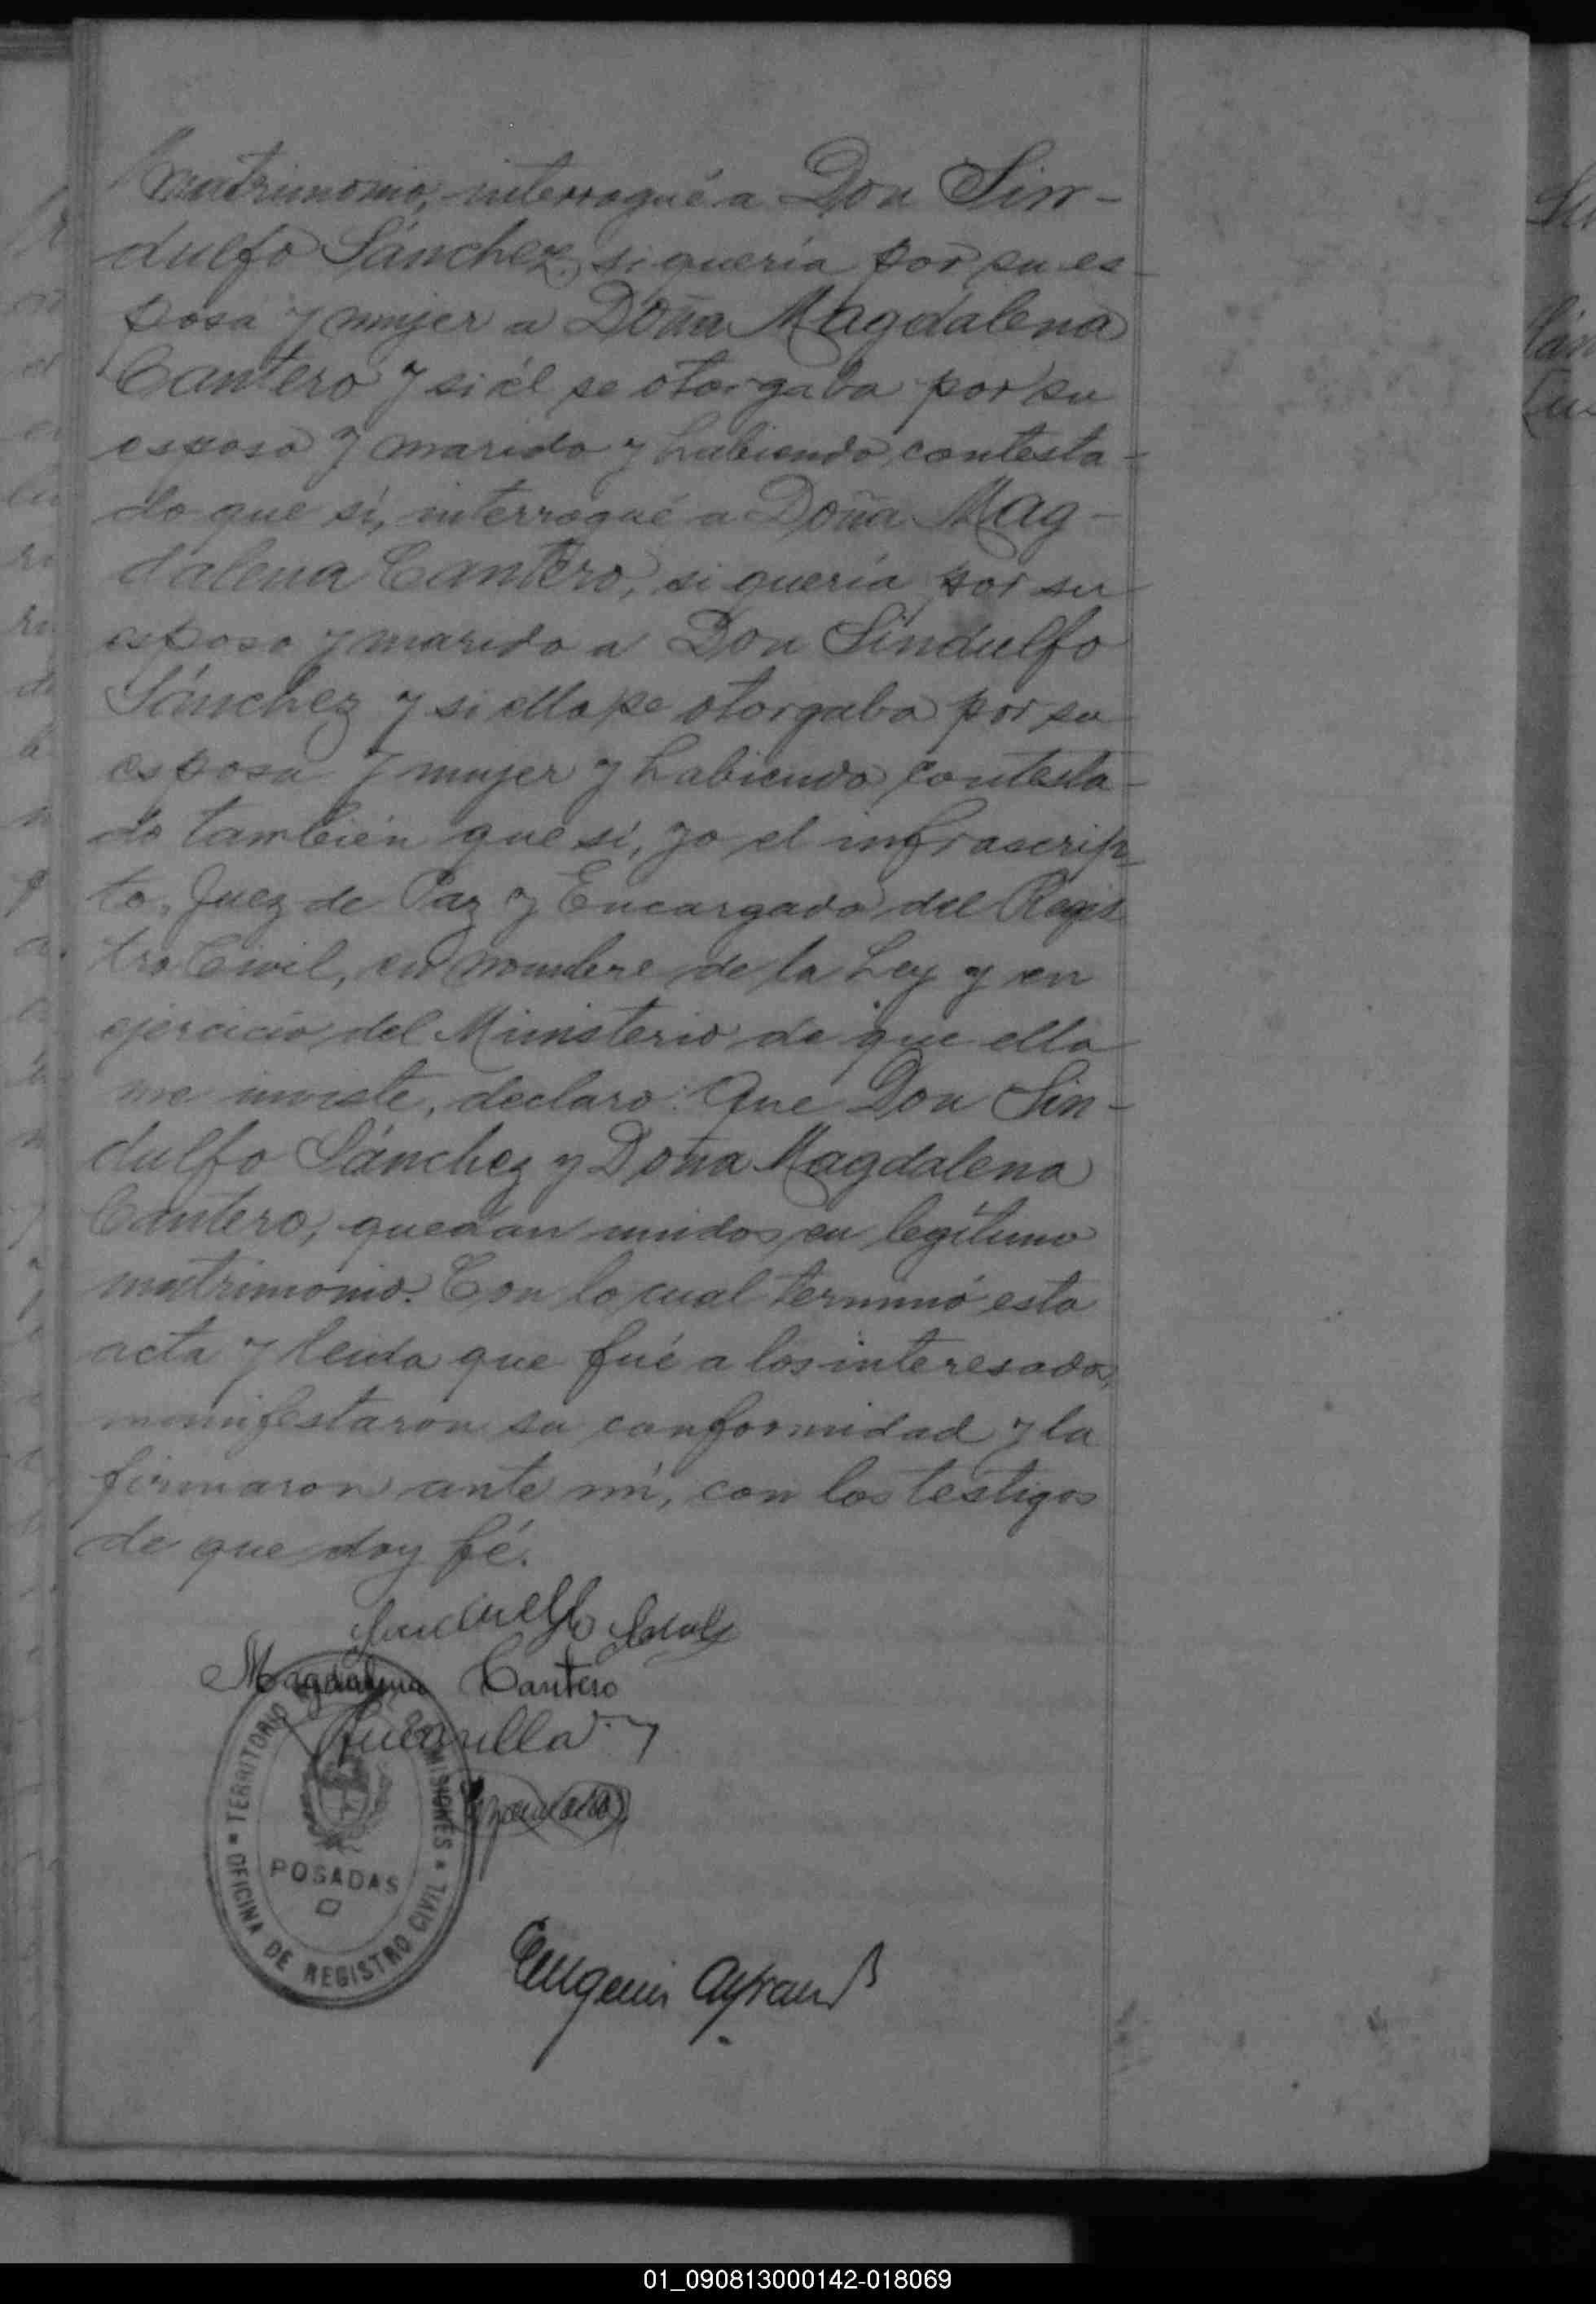 matrimonio, interrogué a Don Sin-
dulfo Sánchez, si quería por su es-
posa y mujer a Doña Magdalena
Cantero y si él se otorgaba por su
esposo y marido y habiendo contesta-
do que sí, interrogué a Doña Mag-
dalena Cantero, si quería por su
esposo y marido a Don Sindulfo
Sánchez y si ella se otorgaba por su
esposa y mujer y habiendo contesta-
do también que sí, yo el infrascrip-
to, Juez de Paz y Encargado del Regis
tro Civil, en nombre de la Ley y en
ejercicio del Ministerio de que ella
me inviste, declaro: Que Don Sin-
dulfo Sánchez y Doña Magdalena
Cantero, quedan unidos en legítimo
matrimonio. Con lo cual terminó esta
acta y leida que fué a los interesados,
manifestaron su conformidad y la
firmaron ante mí, con los testigos
de que doy fé.
Magdalena Cantero
TERRITORIO MISIONES
POSADAS
OFICINA DE REGISTRO CIVIL
Eugenio
01_090813000142-018069